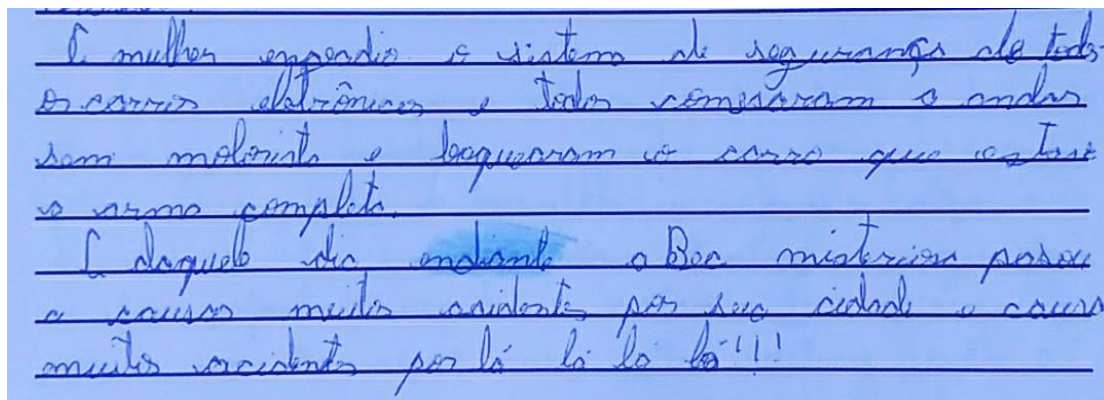 A mulher expendio o sistema de segurança de todos
os carros eletrônicos e todos comesaram a andar
sem motorista e loquearam o carro que estava
o crime completo.
E daquele dia endiante o Boa misterioso pasou
a causar muitos acidentes por sua cidade e causa
muitos acidentes por lá lá lá lá!!!